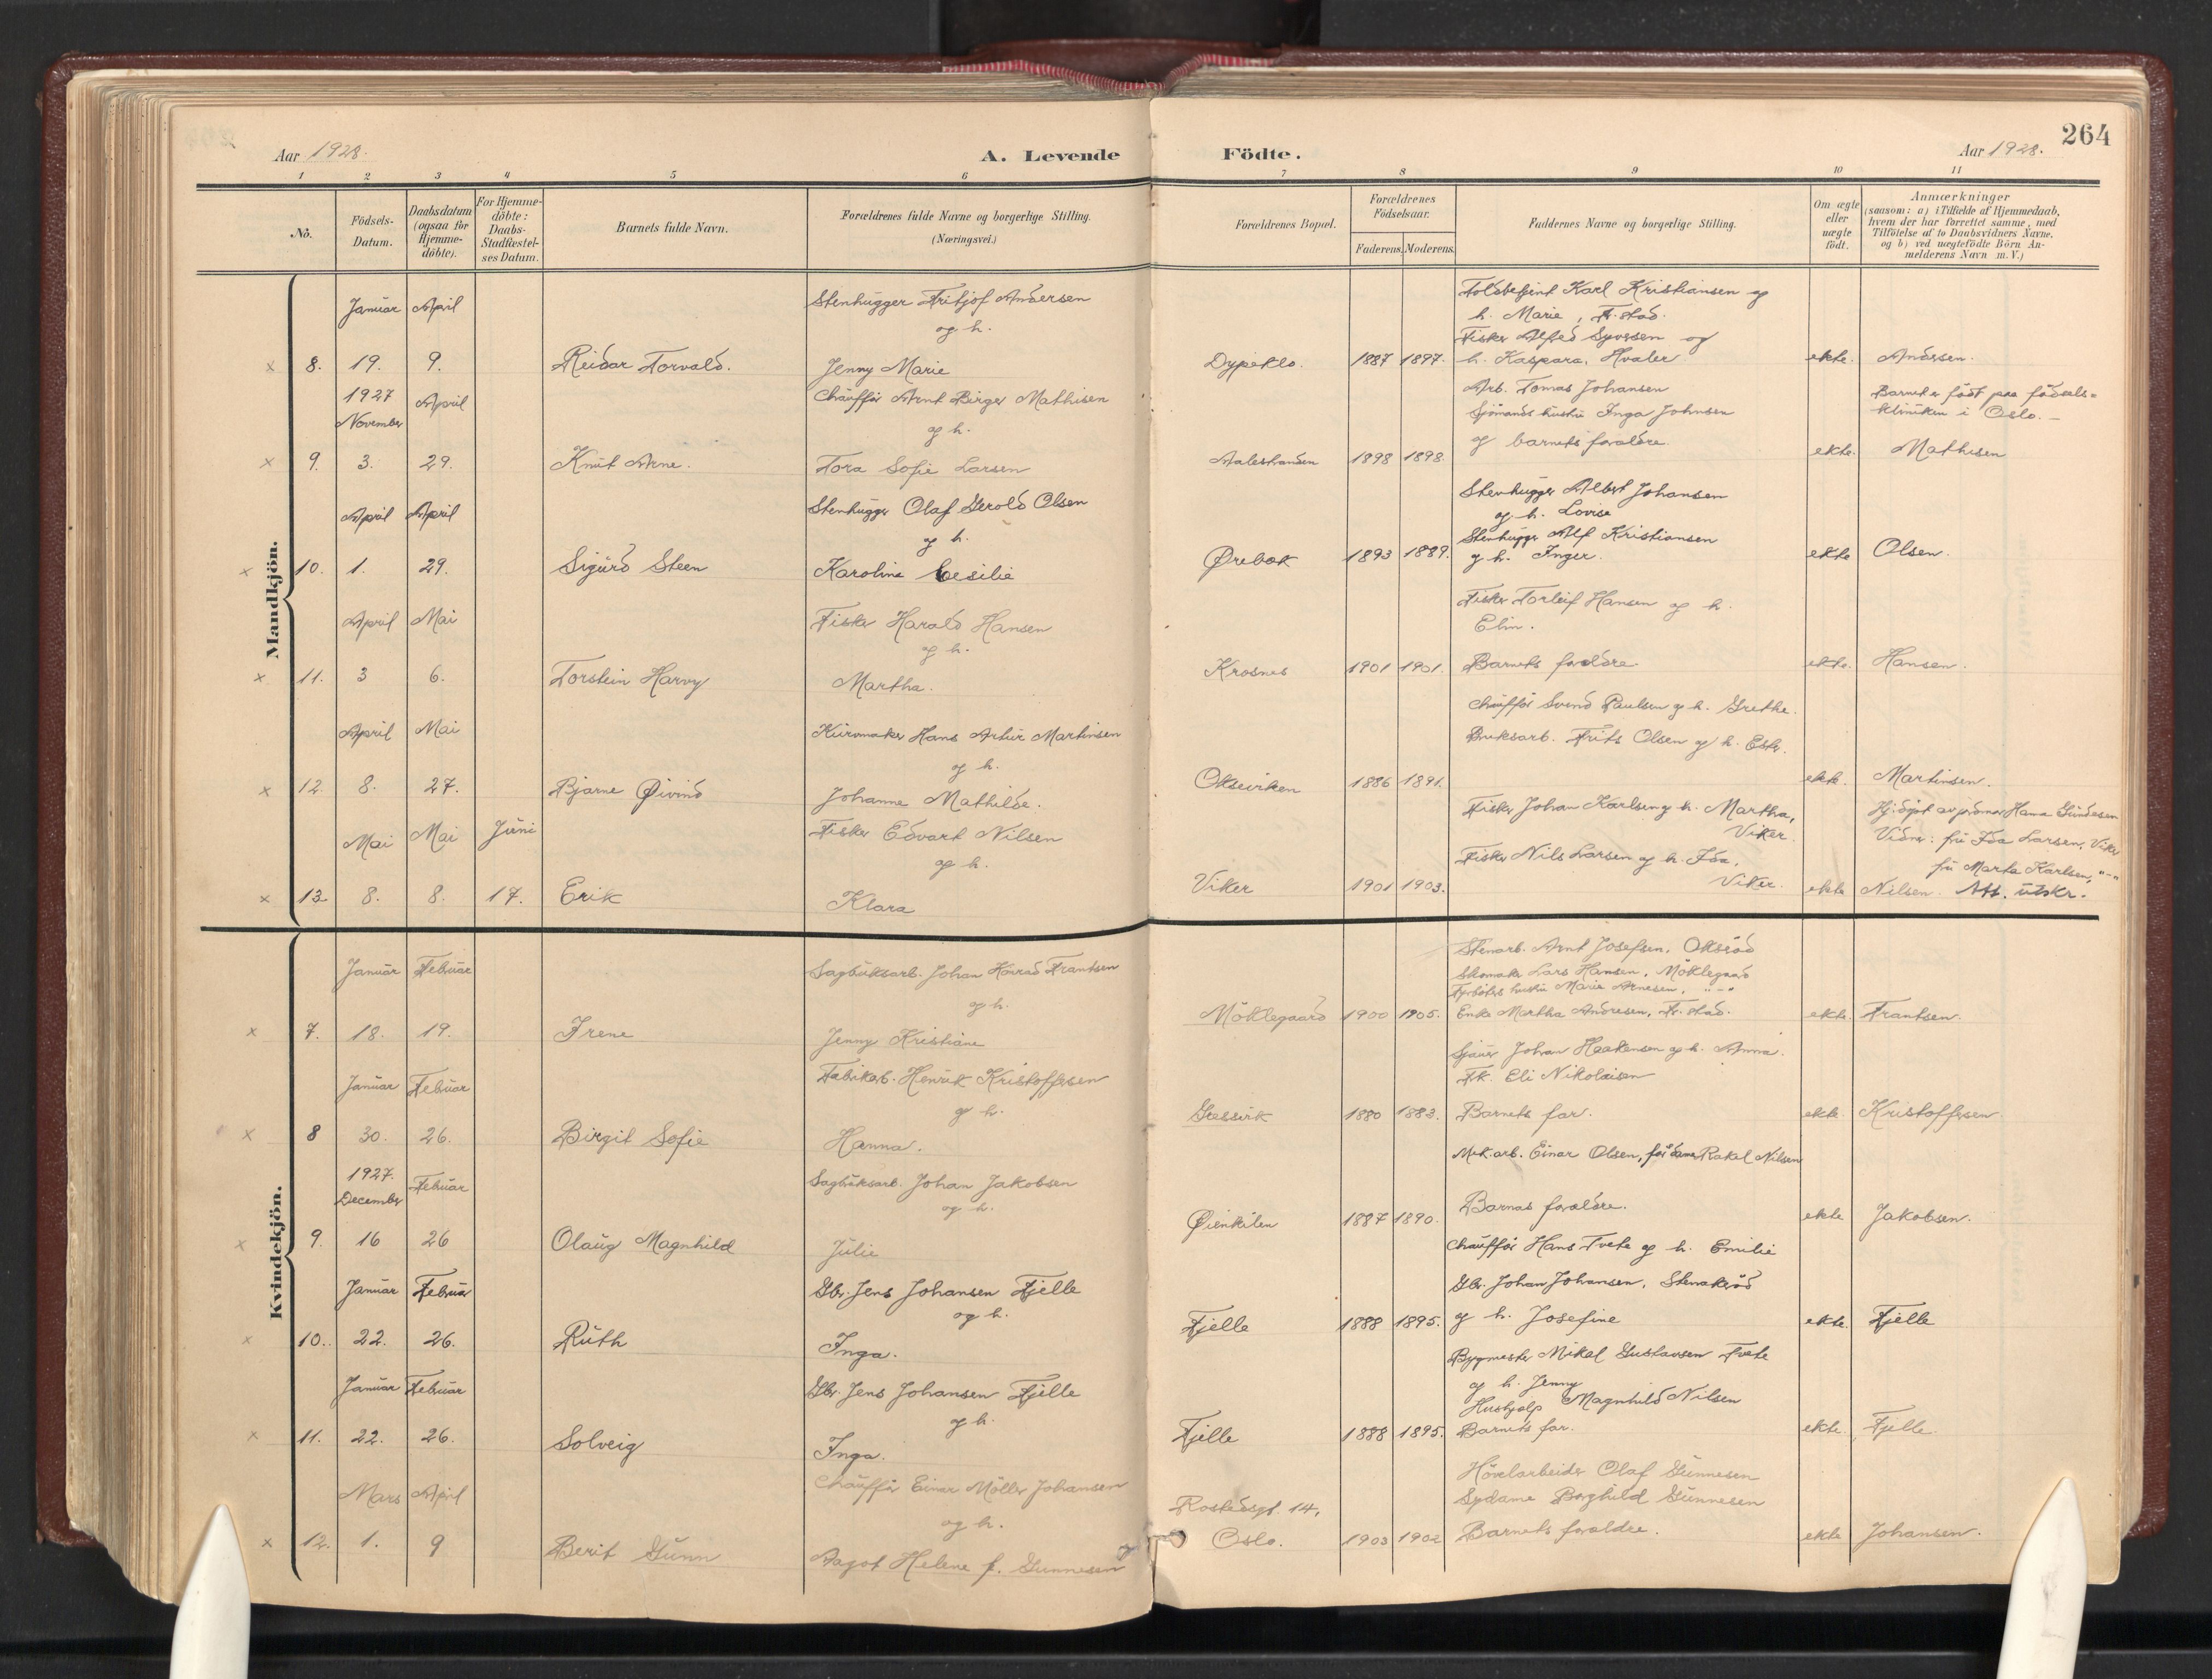 264
Aar 1928.
A. Levende
Födte.
Aar 1928.
1 2 3 4 5 6 7 8 9 10 11
No.
Födsels-Datum.
Daabsdatum (ogsaa for Hjemme-döbte).
For Hjemme-döbte: Daabs-Stadfæstel-ses Datum.
Barnets fulde Navn.
Forældrenes fulde Navne og borgerlige Stilling.
(Næringsvei.)
Forældrenes Bopæl.
Forældrenes Födselsaar.
Faderens. Moderens.
Faddernes Navne og borgerlige Stilling.
Om ægte eller uægte født.
Anmærkninger
(saasom: a) i Tilfælde af Hjemmedaab, hvem der har forrettet samme, med Tilföielse af to Daabsvidners Navne, og b) ved uægtefödte Börn An-melderens Navn m. V.)
Mandkjön.
Januar April Stenhugger Fritjof Andersen Karl Kristiansen og
og h. h. Marie, Fr.stad.
Fisker Alfred Syversen og
x 8. 19. 9. Reidar Torvald. Jenny Marie Dypeklo. 1887 1897. h. Kaspara, Hvaler ekte. Andersen.
1927 November April Chauffør Arnt Birger Mathisen Arb. Tomas Johansen Barnet er født paa fødsels=
og h. Sjömands hustru Inga Johnsen kliniken i Oslo. –
x 9. 3. 29. Knut Arne. Tora Sofie Larsen Aalestranden 1898 1898. og barnets forældre. ekte. Mathisen
April April Stenhugger Olaf Gerold Olsen Stenhugger Albert Johansen
og h. og h. Lovise
Stenhugger Alf Kristiansen
x 10. 1. 29. Sigurd Steen Karoline Cesilie Ørebæk 1893 1889. og h. Inger. ekte Olsen.
April Mai Fisker Harald Hansen Fisker Torleif Hansen og h.
og h. Elin.
x 11. 3 6. Torstein Harvy Martha. Krosnes 1901 1901. Barnets forældre ekte. Hansen.
April Mai Hans Artur Martinsen Chauffør Svend Paulsen og h. Grethe.
og h. Bruksarb. Frits Olsen og h.
x 12. 8. 27. Bjarne Øivind Johanne Mathilde. Oksviken 1886 1891. ekte. Martinsen.
Mai Mai Juni Fisker Edvart Nilsen Fisker Johan Karlsen og h. Martha, Hj.døpt av Hanna Gundesen
og h. Viker. Vidner: fru Ida Larsen, Viker
Fisker Nils Larsen og h. Ida, fru Marta Karlsen, "–"
x 13 8. 8. 17. Erik Klara Viker 1901 1903. Viker. ekte Nilsen. Att. utskr.
Kvindekjön.
Januar Februar Sagbruksarb. Johan Konrad Frantsen Stenarb. Arnt Josefsen,
og h. Skomaker Lars Hansen, Möklegaard
Fyrbøters hustru Marie Arnesen, "–"
x 7. 18. 19. Irene Jenny Kristiane Möklegaard 1900 1905. Enke Martha Andresen, Fr.stad. ekte. Frantsen.
Januar Februar Fabrikarb. Henrik Kristoffersen Johan Haakensen og h. Anna.
og h. Frk. Eli Nikolaisen
x 8 30. 26. Birgit Sofie Hanna. Gressvik 1880 1883. Barnets far. ekte Kristoffersen.
1927. December Februar Sagbruksarb. Johan Jakobsen Mek.arb. Einar Olsen, Rakel Nilsen
og h. Barnas forældre.
x 9. 16 26 Olaug Magnhild Julie Øienkilen 1887 1890. ekte Jakobsen.
Chauffør Hans Tvete og h. Emilie
Januar Februar Gbr. Jens Johansen Fjelle Gbr. Johan Johansen, Stenakerød
og h.
x 10. 22. 26. Ruth Inga. Fjelle 1888 1895. og h. Josefine ekte. Fjelle
Januar Februar Gbr. Jens Johansen Fjelle Bygmester Mikal Gustavsen Tvete
og h. og h. Jenny
Hushjelp Magnhild Nilsen
x 11. 22. 26. Solveig Inga. Fjelle 1888 1895. Barnets far. ekte. Fjelle.
Mars April Chauffør Einar Möller Johansen Hövelarbeider Olaf Gunnesen
og h. Rostedsgt. 14, Sydame Borghild Gunnesen
x 12. 1. 9 Berit Gunn Aagot Helene f. Gunnesen Oslo. 1903 1902 Barnets forældre. ekte Johansen.